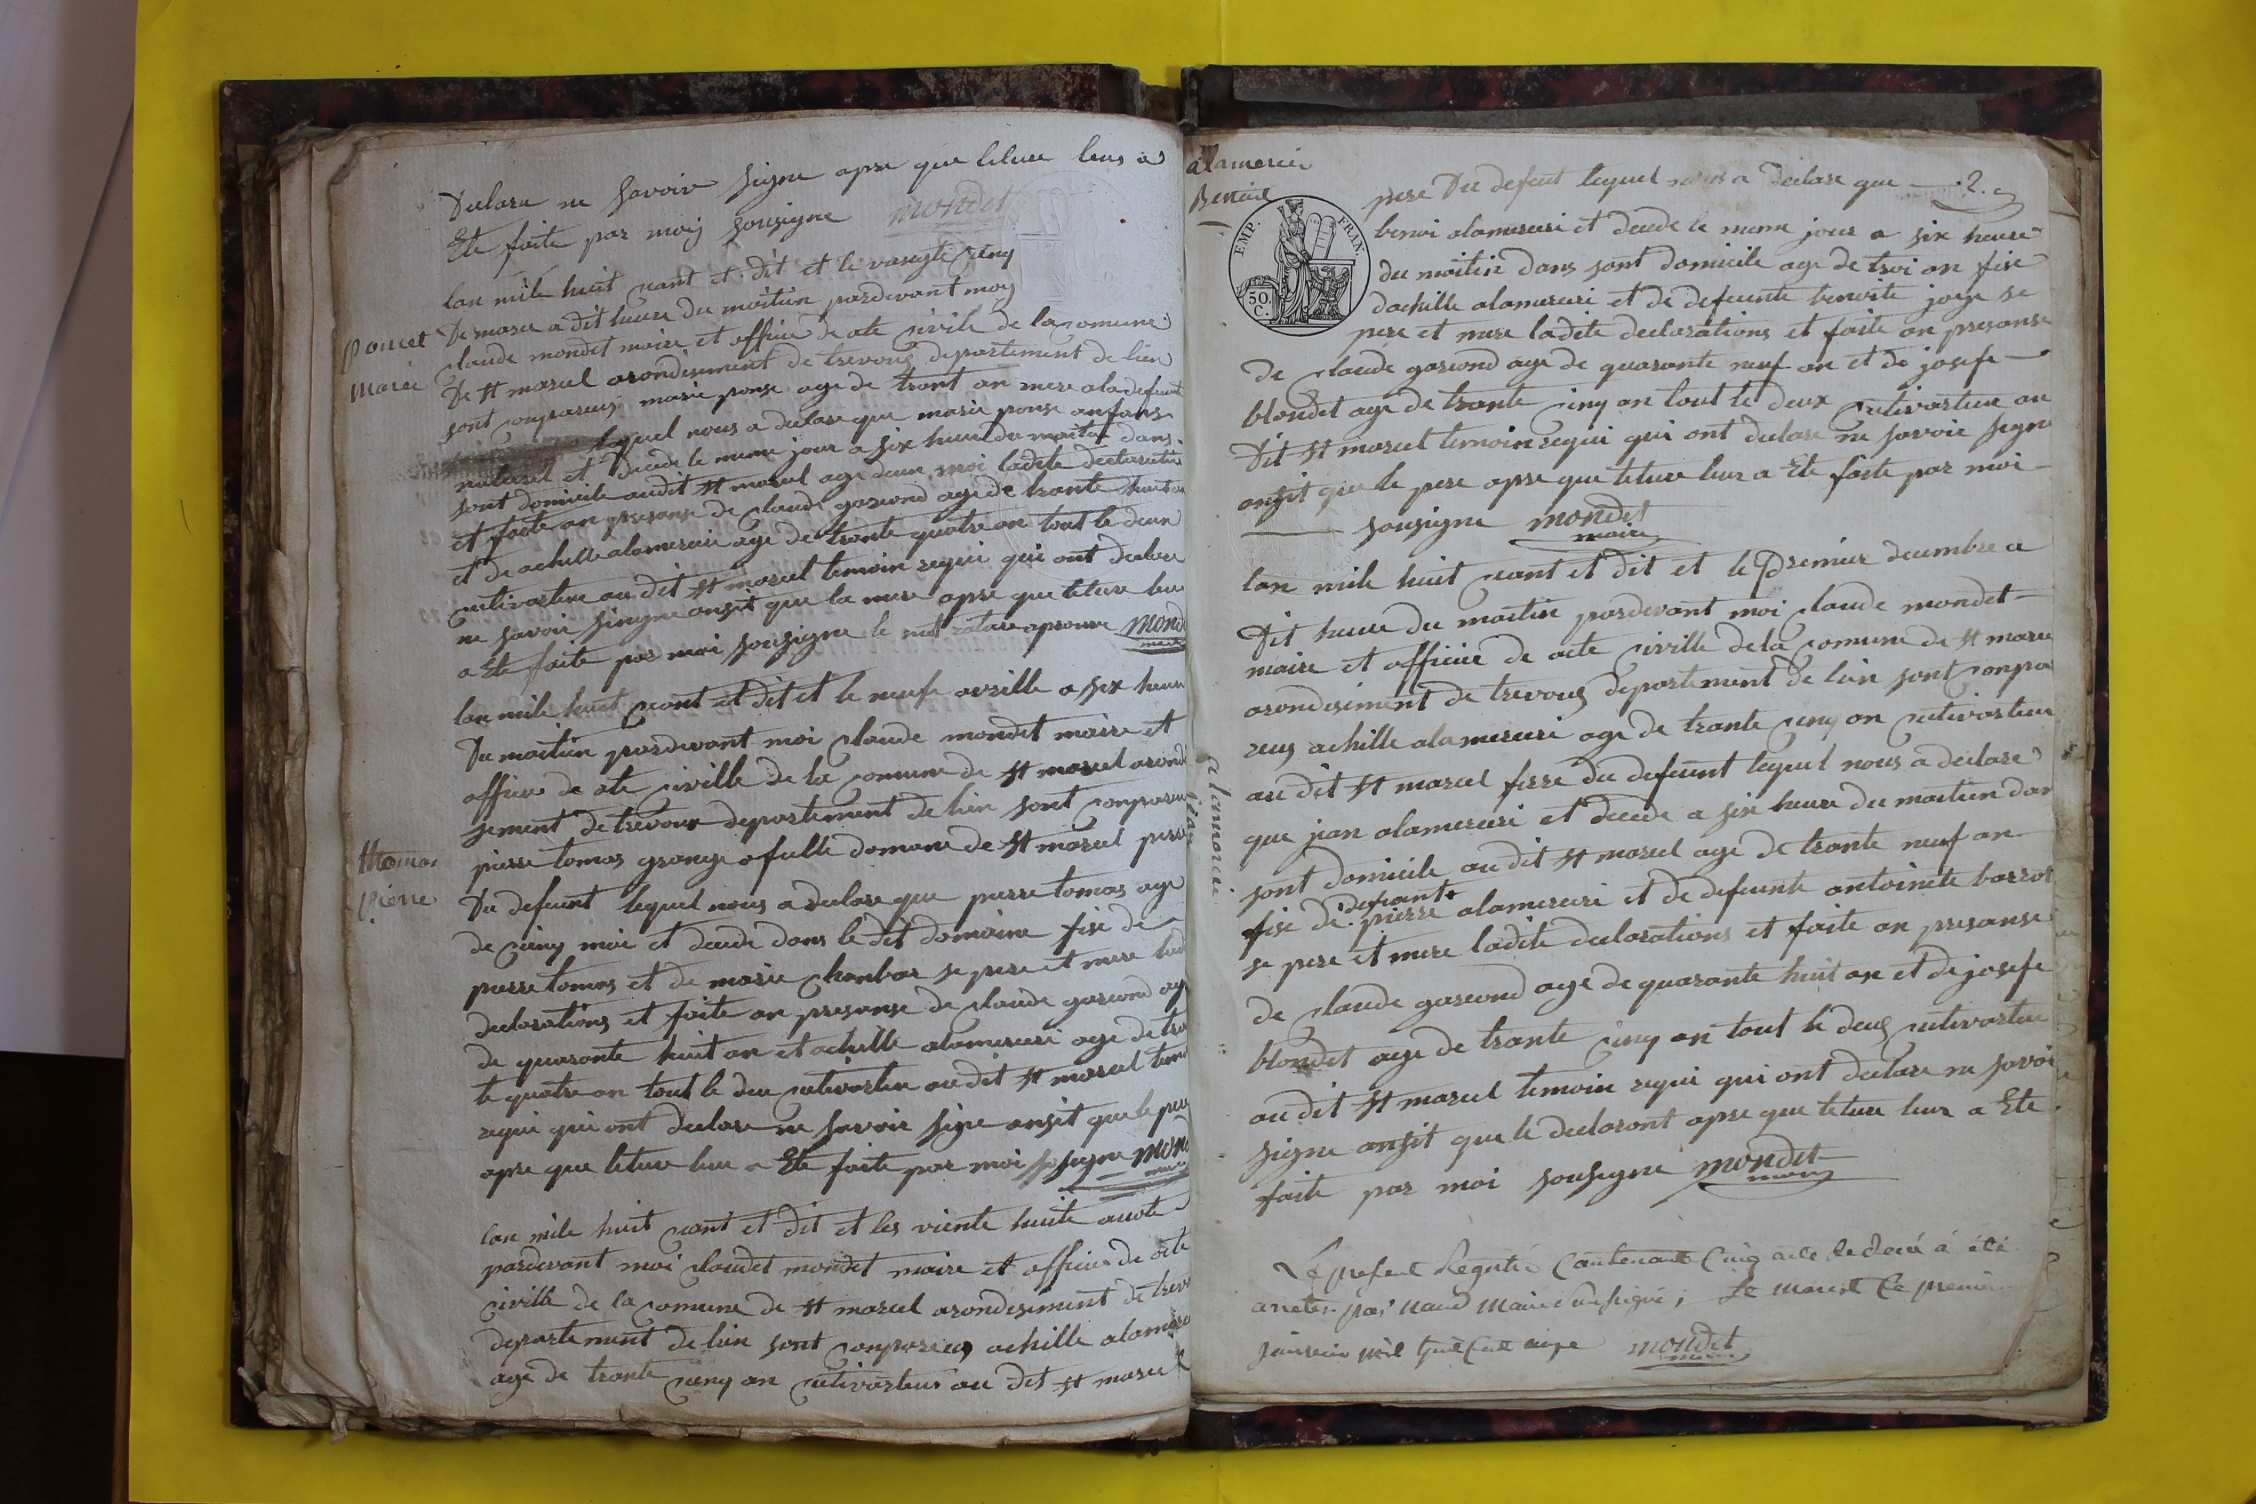 Declare ne savoir signe apre que leture leur a
Ete faite par moy sousigne mondet
lan mile huit cant et dit et le vangte cinq
De mars a dit heure du maitin pardevant moy
poncet
marie
claude mondet maire et officie de ate civile de la comune
De st marcel arondisement de trevoug departement de lien
sont conpareus marie ponse age de trant an mere ala defunte
lequel nous a declare que marie ponse anfans
naturel et decede le meme jour a six heure du maitin dans
sont domicile audit st marcel age deux moi ladite declaration
et faite an presanse de claude garcond age de trante huit an
et de achille alamercui age de trante quatre an tout le deux
cutivarteur au dit st marcel temoin requi qui ont declare
ne savoir singne ansit que la mere apre que leture leur
a Ete faite par moi sousigne le mot rature aprouve mond
lan mile huit cant et dit et le neufe avrille a six heure
Du maitin pardevant moi claude mondet maire et
officie de ate civille de la comune de st marcel arondi
sement de trevoux departement de lien sont conpareu
thomas
pierre
pierre tomas grange a fulle domane de st marcel perre
Du defeunt lequel nous a declare que pierre tomas age
de cinq moi et decede dans le dit domaine fise de
pierre tomas et de marie chanbar se pere et mere ladi
declarations et faite an presanse de claude garcond age
de quarante huit an et achille alamercuri age de tra
te quatre an tout le deu cutivarteur au dit st marcel temo
requi qui ont declare ne savoir sige ansit que le pere
apre que leture leur a Ete faite par moi sousigne mond
lan mile huit cant et dit et les viente huite auote
pardevant moi claudet mondet maire et officie de acte
civille de la comune de st marcel arondisement de trevo
departement de lien sont conpareus achille alamerc
age de trante cinq an cutivarteur au dit st marcel
alamercui
Benoit
EMP. FRAN.
50. C.
pere Du defeut lequel nous a declare que 2.
benoi alamercuri et decede le meme jour a six heure
du maitin dans sont domicile age de troi an fise
dachille alamercuri et de defeunte benoite joge se
pere et mere ladite declarations et faite an presanse
de claude garcond age de quarante neuf an et de josefe
blondet age de trante cinq an tout le deux cutivarteur au
Dit st marcel temoin requi qui ont declare ne savoir signe
ansit que le pere apre que leture leur a Ete faite par moi
sousigne mondet
maire
lan mile huit cant et dit et le premier decembre a
Dit heure du maitin pardevant moi claude mondet
maire et officie de acte civille de la comune de st marce
arondisement de trevoug departement de lien sont conpa
reus achille alamercuri age de trante cinq an cutivarteur
alamercui
jean
au dit st marcel ferre du defeunt lequel nous a declare
que jean alamercuri et decede a six heure du maitin dan
sont domicile au dit st marcel age de trante neuf an
fise de defeunt pierre alamercuri et de defeunte antoinete barrot
se pere et mere ladite declarations et faite an presanse
de claude garcond age de quarante huit an et de josefe
blondet age de trante cinq an tout le deug cutivarteur
au dit st marcel temoin requi qui ont declare ne savoir
signe ansit que le declarant apre que leture leur a Ete
faite par moi sousigne mondet
maire
Le present Registre contenant Cinq acte de decé a été
areter par nous maire sousigné, St marcel Ce premier
janvier mil huit cent onze mondet
maire